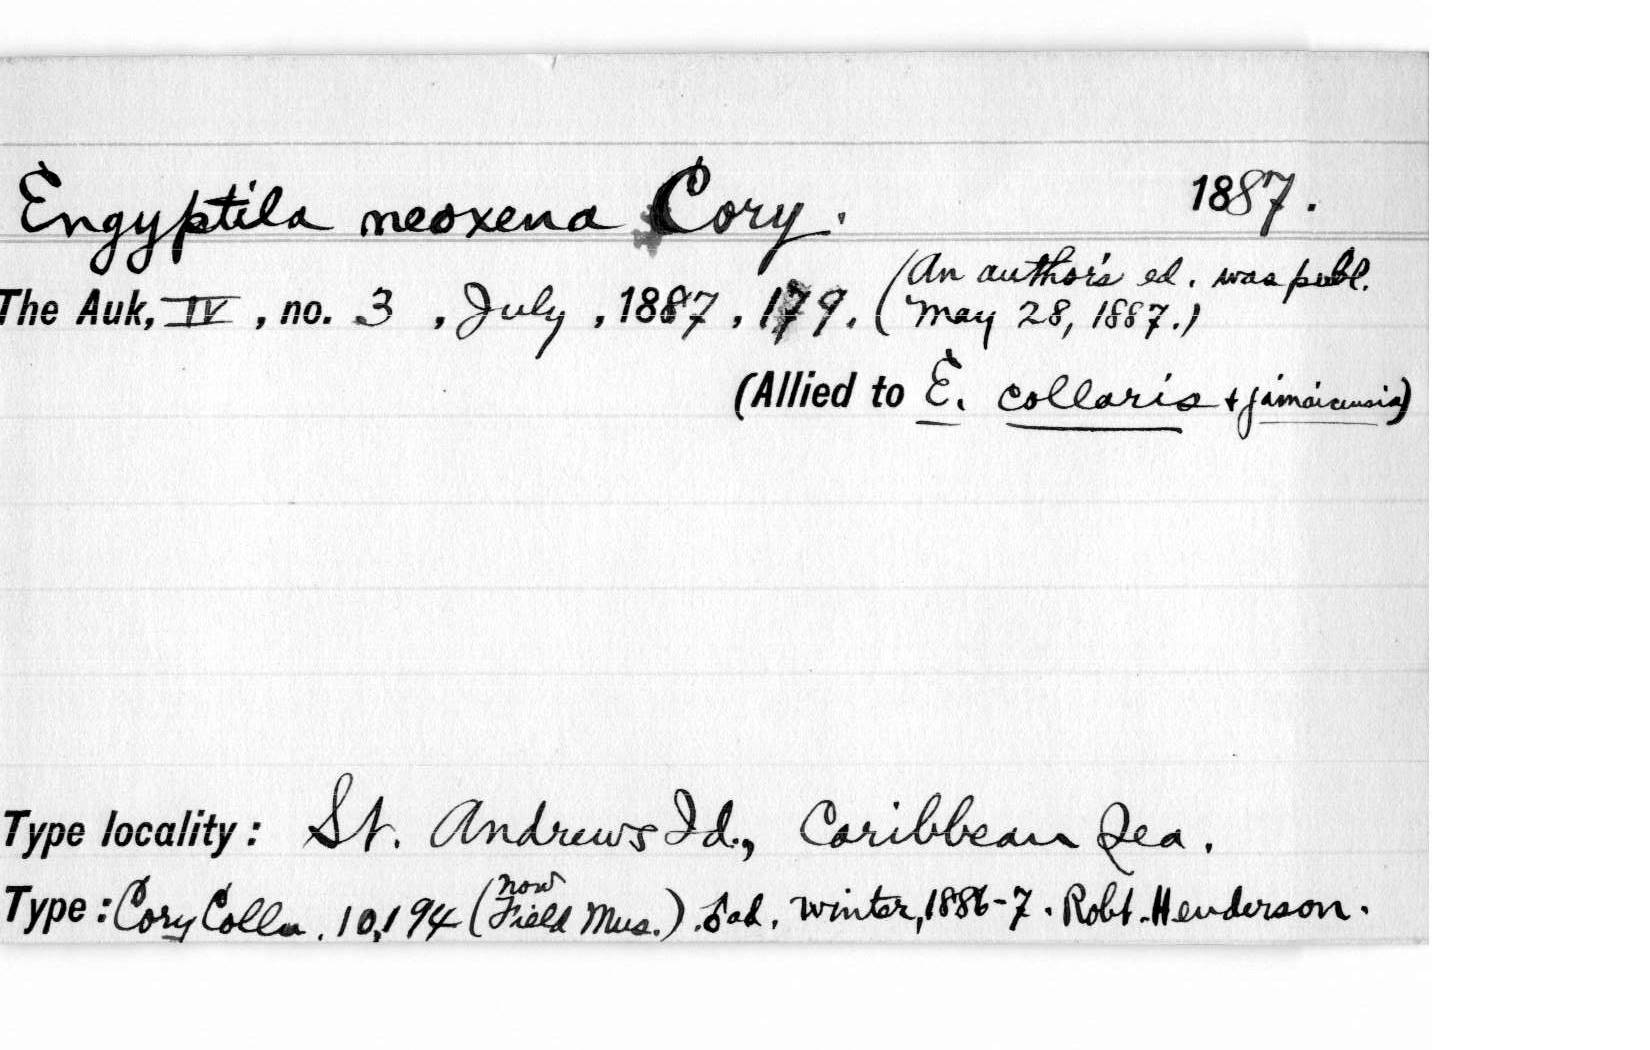 Engyptila neoxena Cory. 1887.
The Auk, IV, no. 3, July, 1887, 179. (An author's ed. was publ.
May 28, 1887.)
(Allied to E. collaris + jamaicensis)
Type locality: St. Andrews Id., Caribbean Sea.
Type: Cory Colln. 10,194 (now Field Mus.). ad. winter, 1886-7. Robt. Henderson.